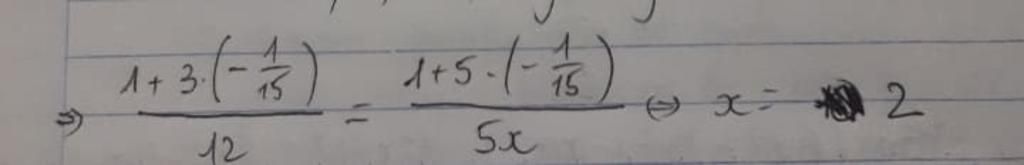 ⇒ \frac{1+3\cdot\left(-\frac{1}{15}\right)}{12} = \frac{1+5\cdot\left(-\frac{1}{15}\right)}{5x} ⇔ x = 2